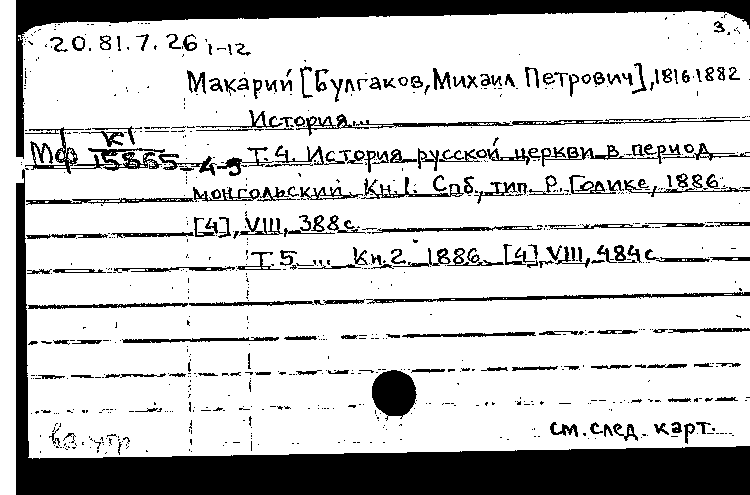 3.
20.81.7.26 1-12
Макарий [Булгаков, Михаил Петрович], 1816-1882
История...
Мф К1/15865 -4-5
Т.4. История русской церкви в период
монгольский. Кн.1. Спб, тип. Р. Голике, 1886.
[4], VIII, 388с.
Т.5. ... Кн.2. 1886. [4], VIII, 484с
см. след. карт.